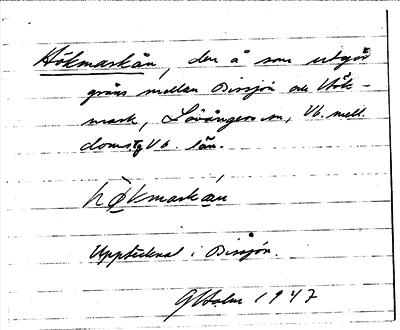 Hökmarkån, den å som utgör
gräns mellan Bissjön och Hök-
mark, Lövångers sn, Vb. mell.
doms Vb. län.
hökmarkån
Upptecknat i Bissjön.
G Holm 1947